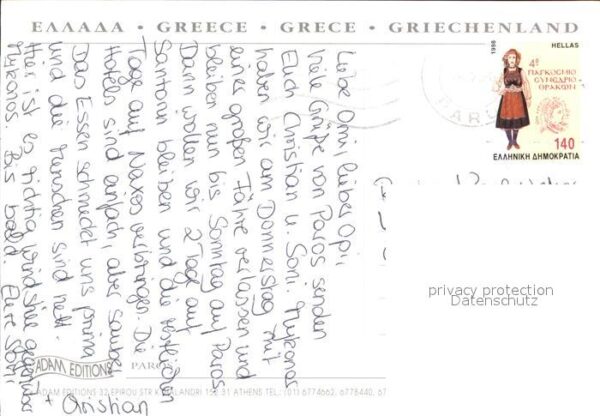 ΕΛΛΑΔΑ • GREECE • GRECE • GRIECHENLAND
1998
HELLAS
4º
ΠΑΓΚΟΣΜΙΟ
ΣΥΝΕΔΡΙΟ
ΘΡΑΚΩΝ
140
ΕΛΛΗΝΙΚΗ ΔΗΜΟΚΡΑΤΙΑ
Liebe Omi, lieber Opi,
Viele Grüße von Paros senden
Euch Christian u. Soni. Mykonos
haben wir am Donnerstag mit
einer großen Fähre verlassen und
bleiben nun bis Sonntag auf Paros.
Dann wollen wir 2 Tage auf
Santorin bleiben und die restlichen
Tage auf Naxos verbringen. Die
Hotels sind einfach, aber sauber.
Das Essen schmeckt uns prima
und die Menschen sind nett.
Hier ist es richtig windstill gegenüber
Mykonos. Bis bald Eure Soni
+ Christian
privacy protection
Datenschutz
ADAM EDITIONS
PAROS
ADAM EDITIONS 32 EPIROU STR KHALANDRI 152 31 ATHENS TEL.: (01) 6774662, 6778440,